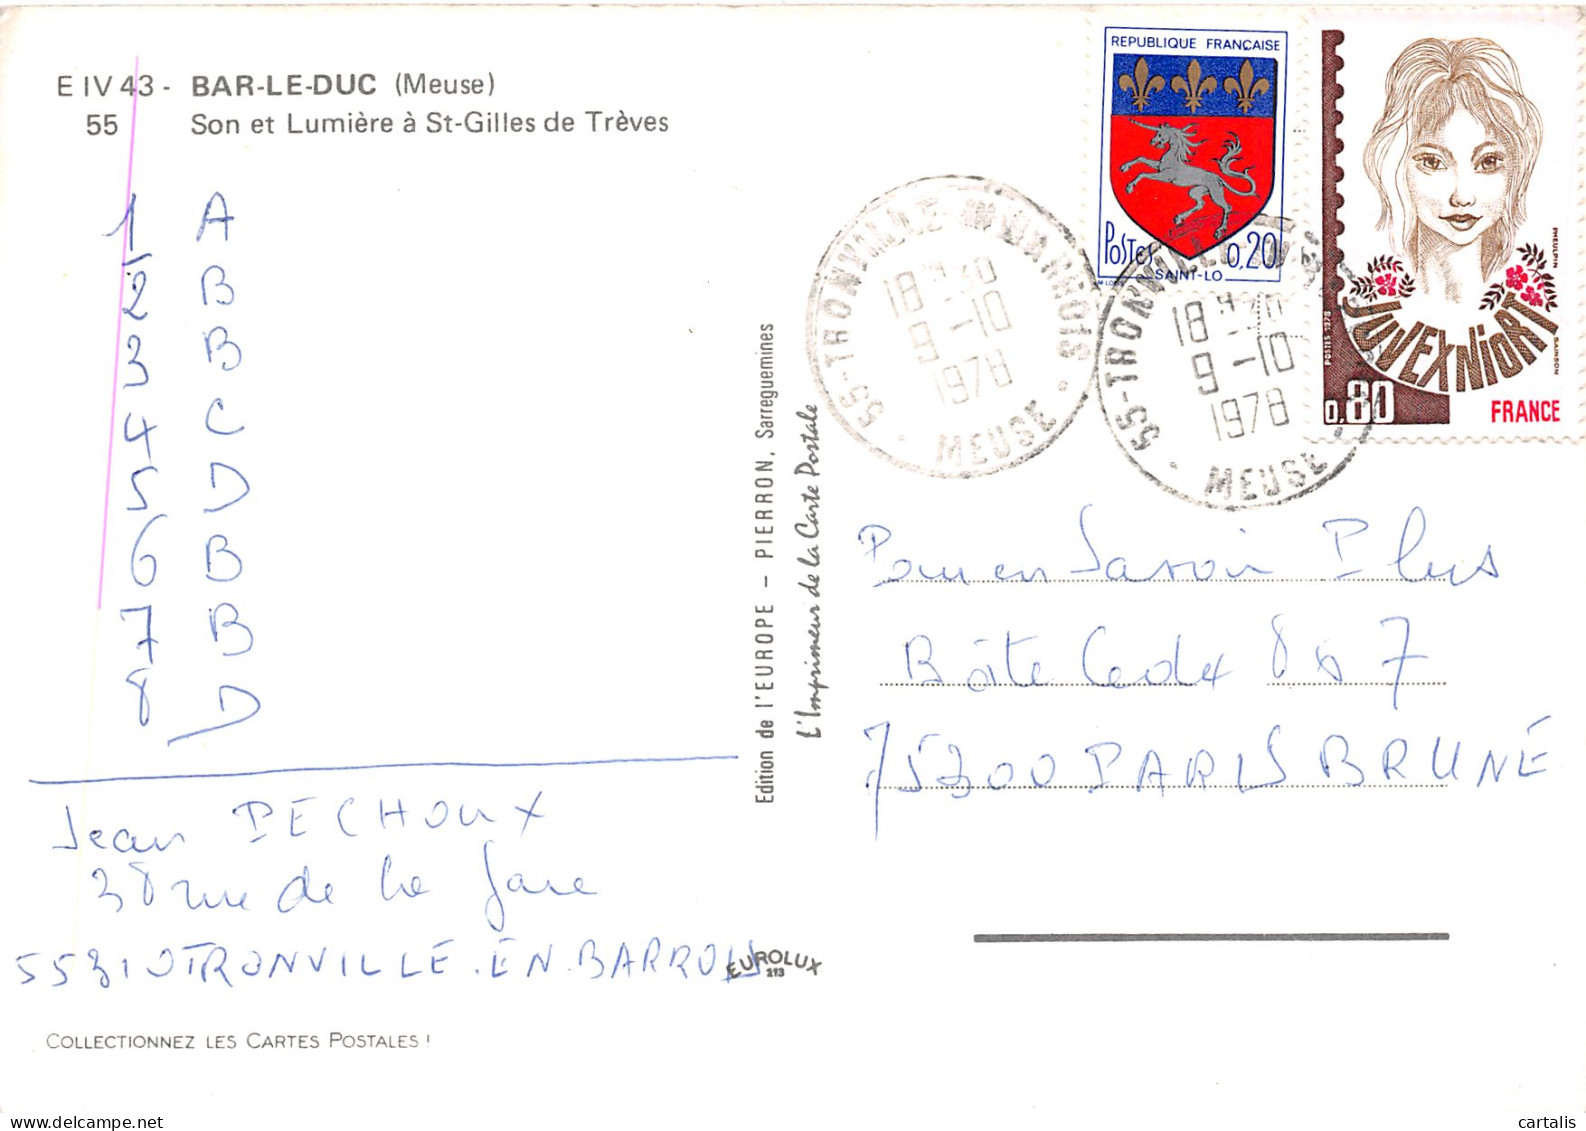 E IV 43 - BAR-LE-DUC (Meuse)
55 Son et Lumière à St-Gilles de Trèves
1 A
2 B
3 B
4 C
5 D
6 B
7 B
8 D
Jean PECHOUX
38 rue de la Gare
55310 TRONVILLE.EN.BARROIS
COLLECTIONNEZ LES CARTES POSTALES !
EUROLUX
213
Edition de l'EUROPE – PIERRON, Sarreguemines
L'Imprimeur de la Carte Postale
REPUBLIQUE FRANÇAISE
Postes 0,20
SAINT-LO
JUVEXNIORT
POSTES 1978
PHEULPIN
SAINSON
0,80 FRANCE
55-TRONVILLE-EN-BARROIS
18H30
9-10
1978
MEUSE
55-TRONVILLE
18H30
9-10
1978
MEUSE
Pour en Savoir Plus
Bôite Cedex 807
75300 PARIS BRUNE
cartalis